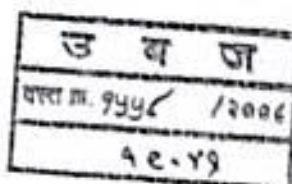 उ व ज
दस्त क्र. १५५८ /२००८
१८-४१